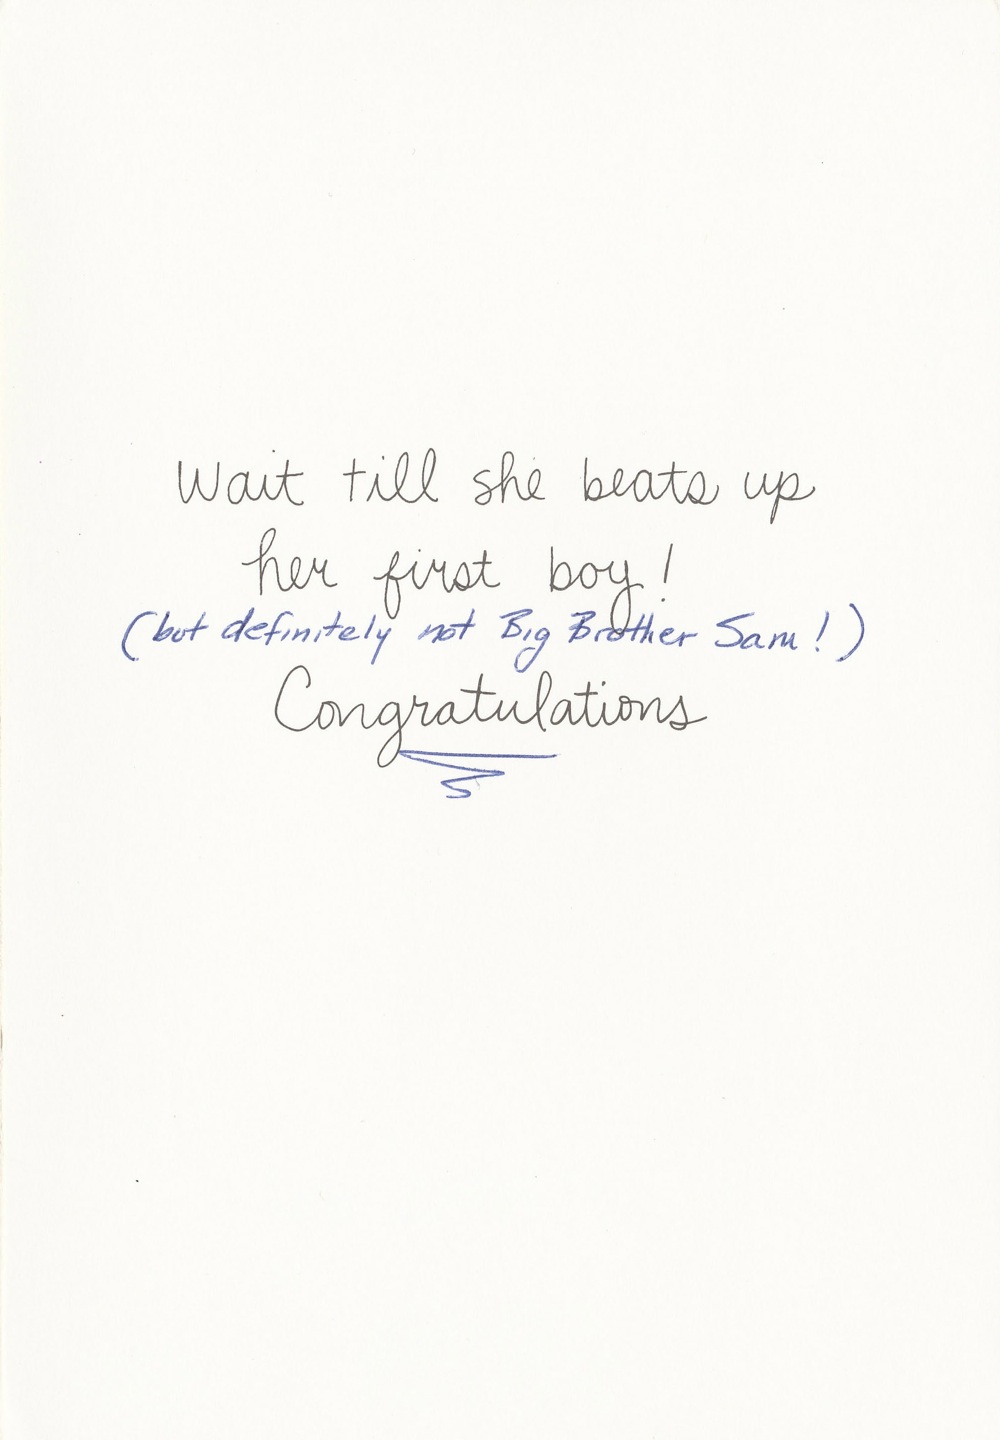 Wait till she beats up
her first boy!
(but definitely not Big Brother Sam!)
Congratulations